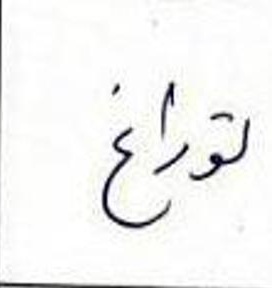 توراغ